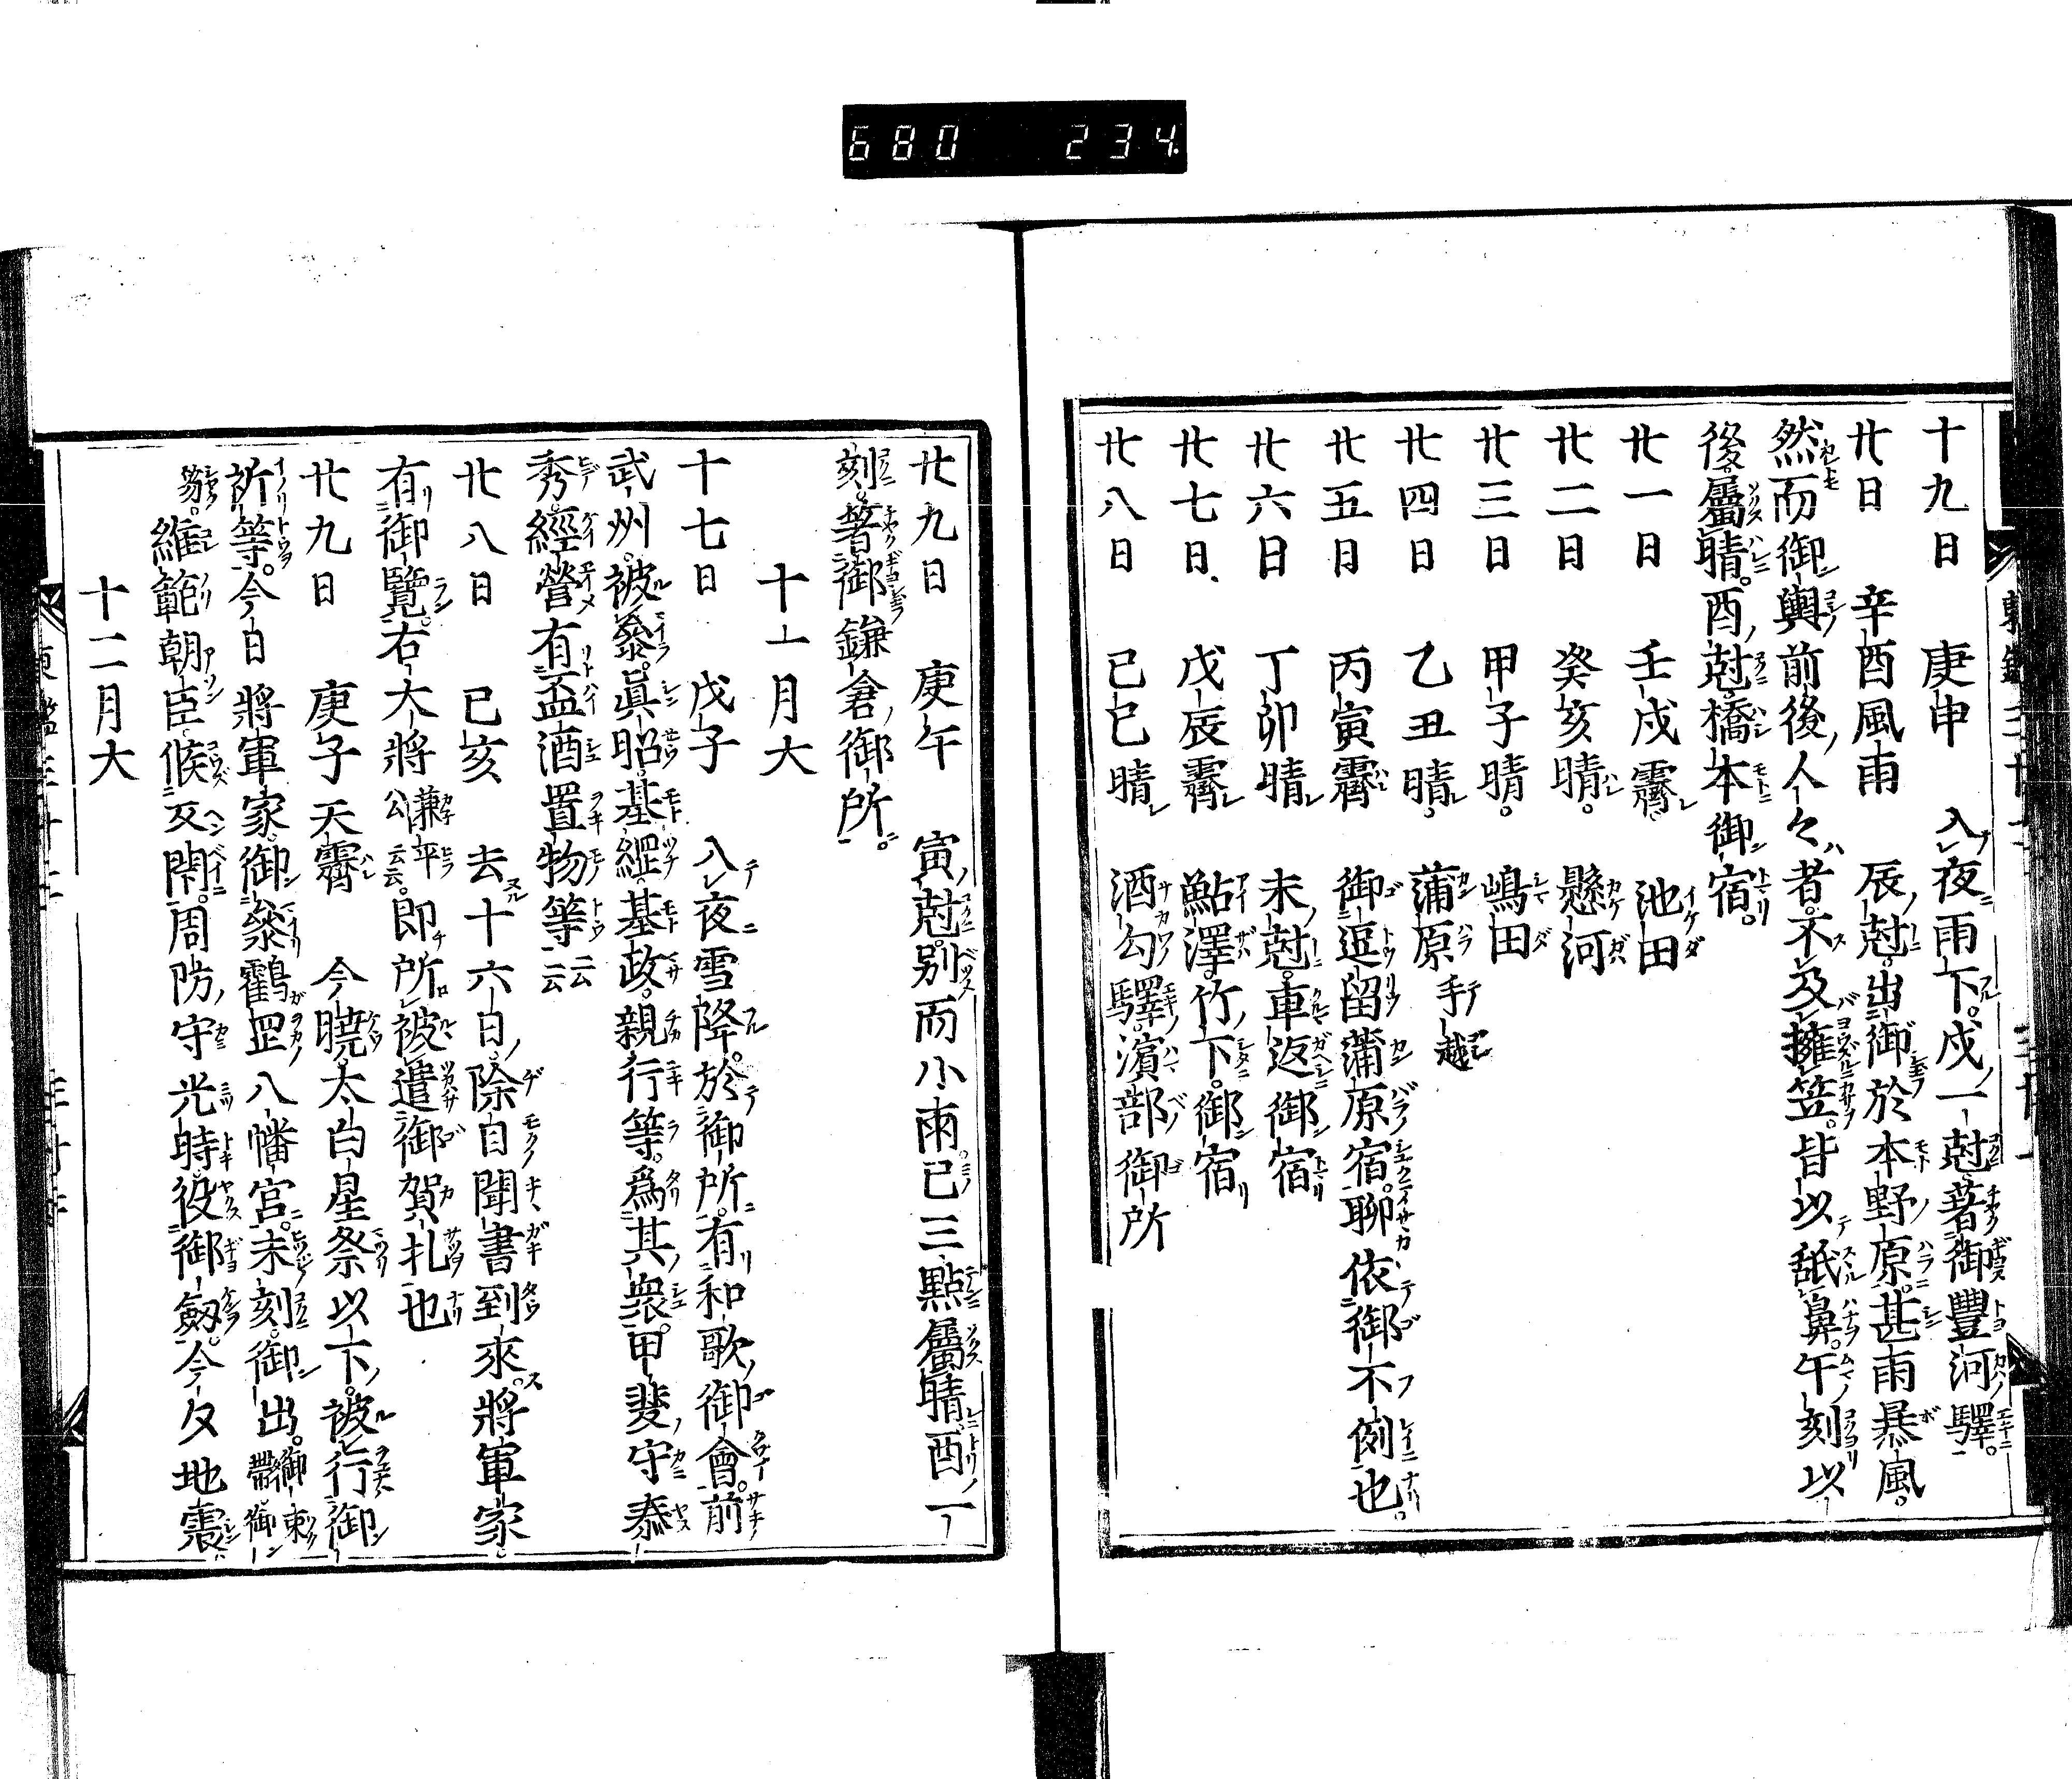 680 234
十九日 庚申 入夜雨下。戌一尅。著御豐河驛。
廿日 辛酉風雨 辰尅。出御於本野原。甚雨暴風。
然而御輿前後人々者。不及擁笠。皆以舐鼻。午刻以
後屬晴。酉尅橋本御宿。
廿一日 壬戌霽 池田
廿二日 癸亥晴。 懸河
廿三日 甲子晴。 嶋田
廿四日 乙丑晴。 蒲原 手越
廿五日 丙寅霽 御逗留蒲原宿。聊依御不例也。
廿六日 丁卯晴 未尅。車返御宿
廿七日 戊辰霽 鮎澤。竹下。御宿
廿八日 己巳晴 酒匂驛。濱部御所
廿九日 庚午 寅尅。別而小雨。已三點屬晴。酉一
刻。著御鎌倉御所。
十一月大
十七日 戊子 入夜雪降。於御所。有和歌御會。前
武州。被參。眞昭。基綱。基政。親行等。爲其衆。甲斐守泰
秀。經營有盃酒置物等云云
廿八日 已亥 去十六日除目聞書到來。將軍家。
有御覽。右大將兼平公云云。即所被遣御賀札也
廿九日 庚子天霽 今曉太白星祭以下。被行御
祈等。今日將軍家。御參鶴岡八幡宮。未刻。御出。御束帶御
維範朝臣。候反閇。周防守光時。役御劔。今夕地震。
十二月大